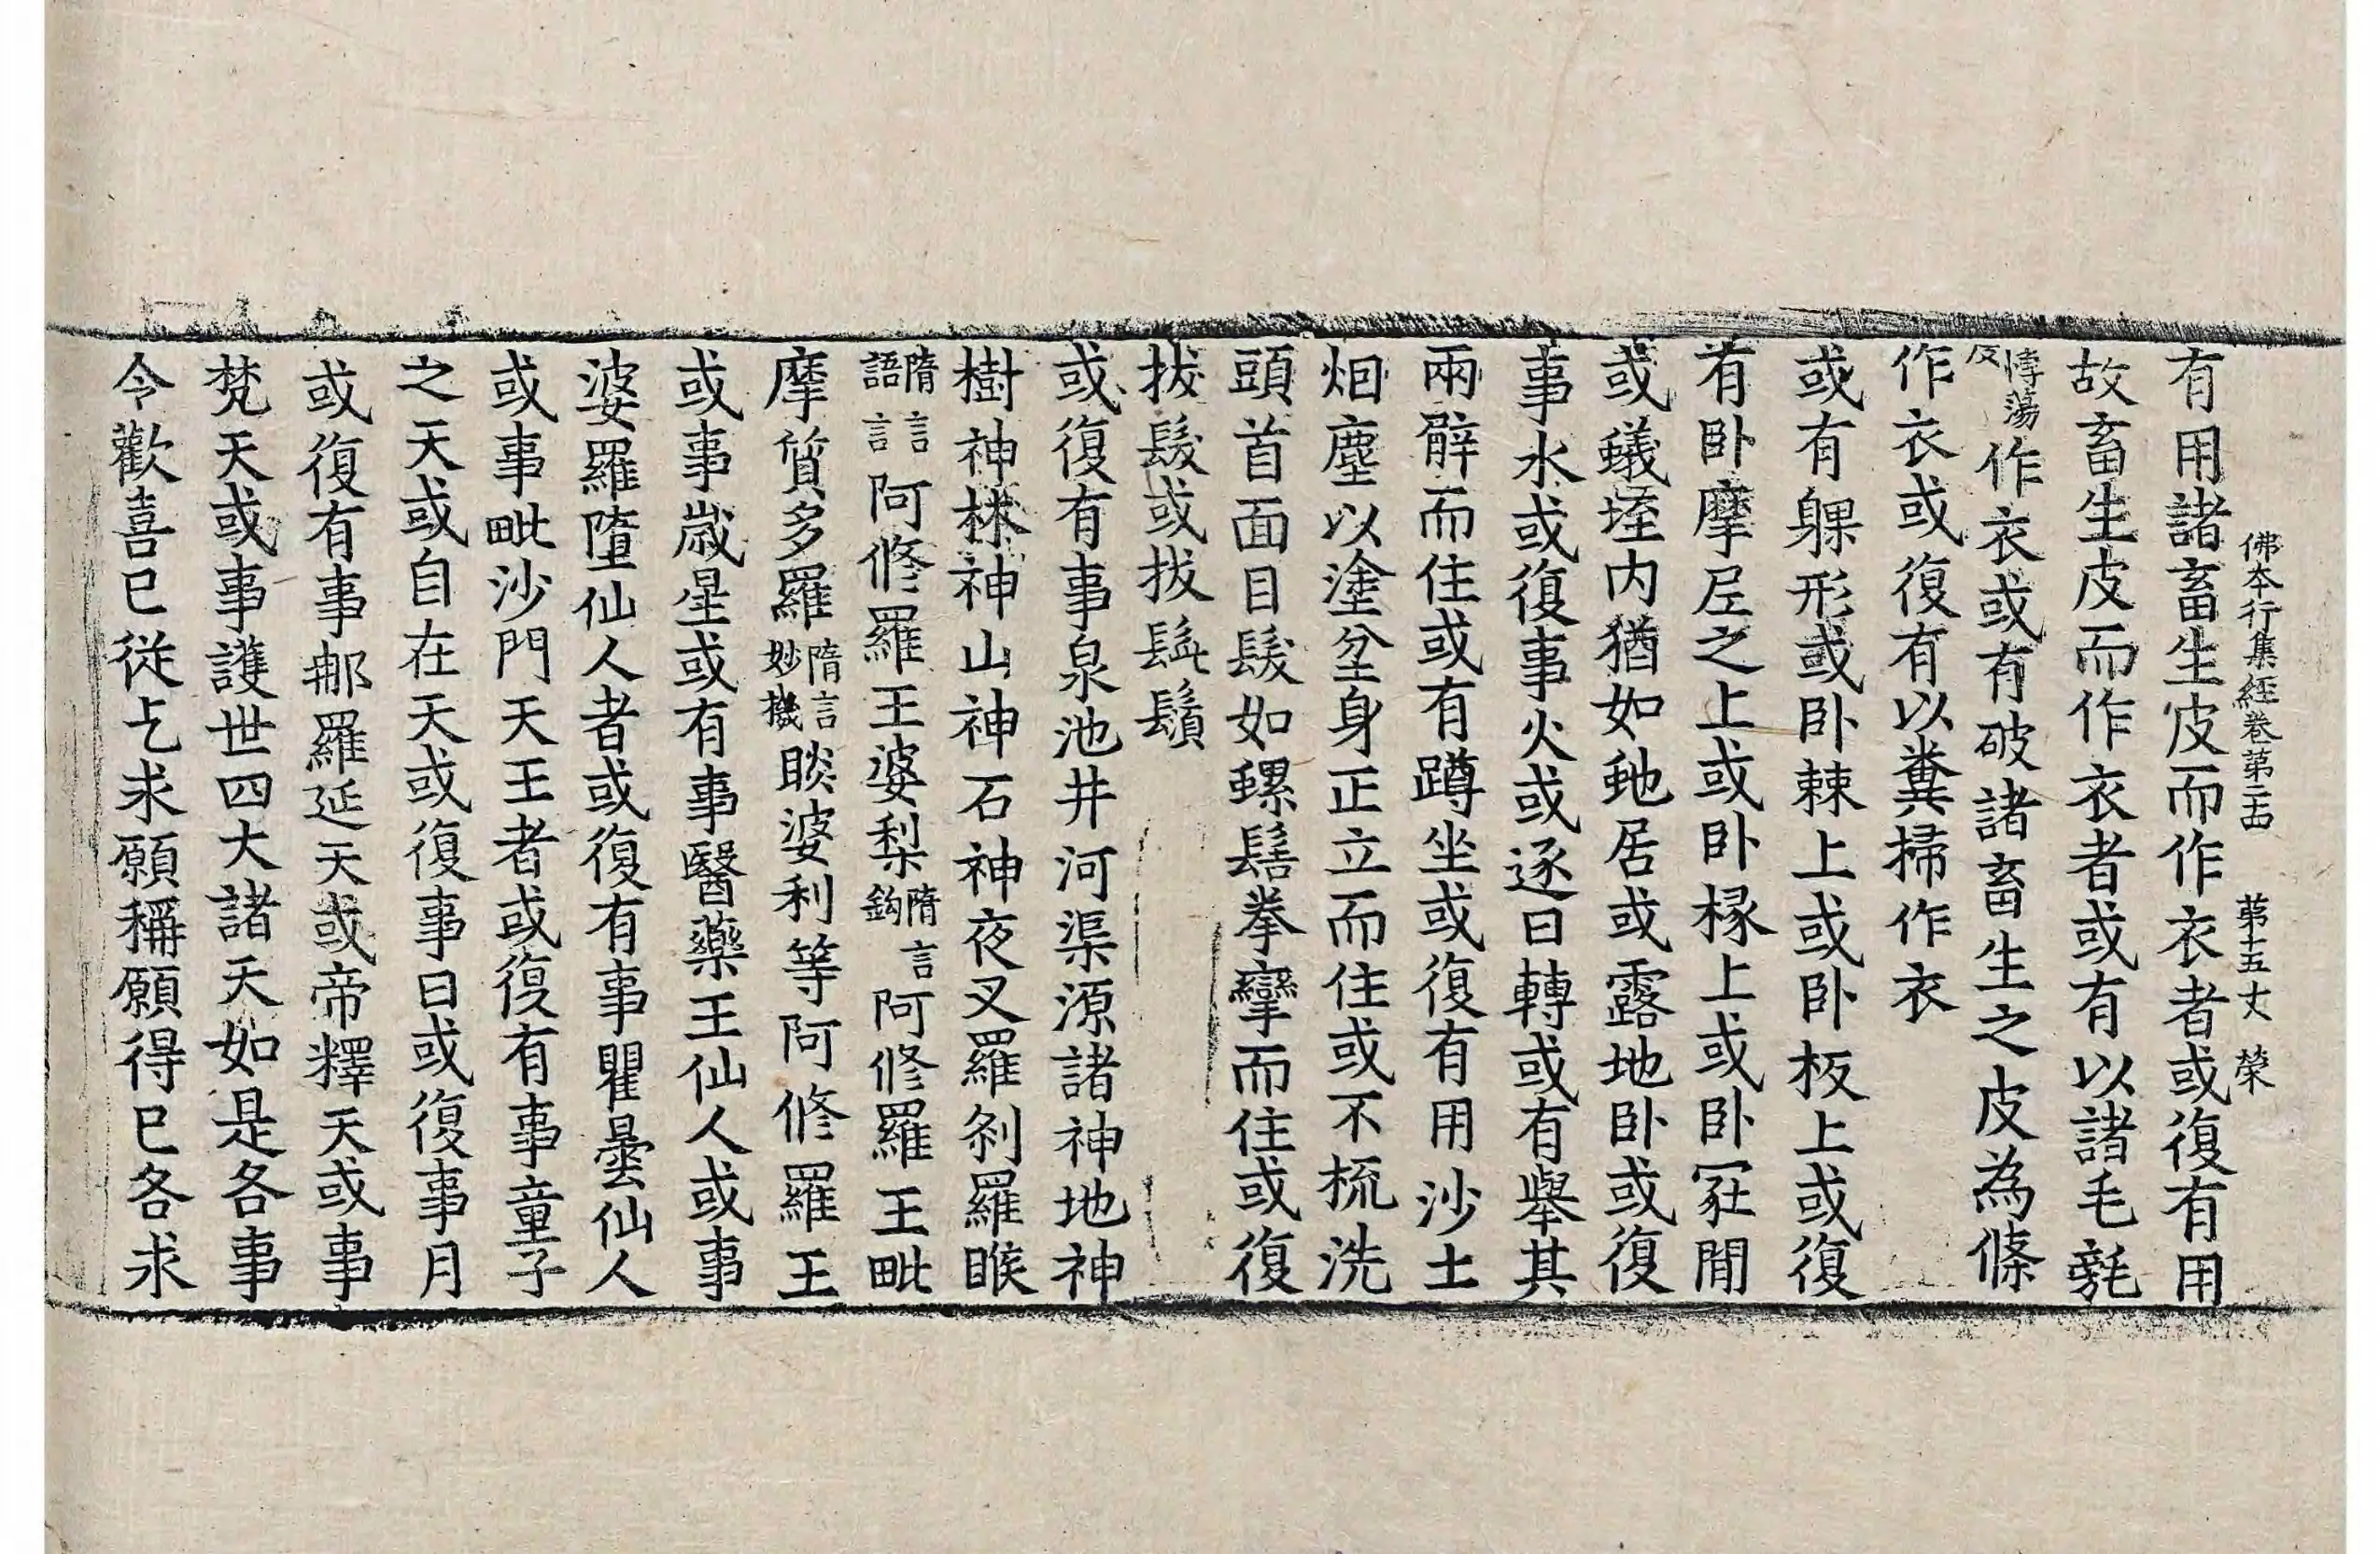 佛本行集經卷第二十四　第十五丈　榮
有用諸畜生皮而作衣者或復有用
故畜生皮而作衣者或有以諸毛毾
悖蕩反作衣或有破諸畜生之皮為條
作衣或復有以糞掃作衣
或有躶形或卧棘上或卧板上或復
有卧摩𡰱之上或卧椽上或卧冡間
或蟻垤内猶如虵居或露地卧或復
事水或復事火或逐日轉或有舉其
兩臂而住或有蹲坐或復有用沙土
烟塵以塗坌身正立而住或不梳洗
頭首面目髮如螺髻拳攣而住或復
拔髮或拔髭鬚
或復有事泉池井河渠源諸神地神
樹神林神山神石神夜叉羅刹羅睺
隋言語言阿修羅王婆梨隋言鈎阿修羅王毗
摩質多羅隋言妙機睒婆利等阿修羅王
或事歲星或有事醫藥王仙人或事
婆羅墮仙人者或復有事瞿曇仙人
或事毗沙門天王者或復有事童子
之天或自在天或復事日或復事月
或復有事那羅延天或帝釋天或事
梵天或事護世四大諸天如是各事
令歡喜已從乞求願稱願得已各求